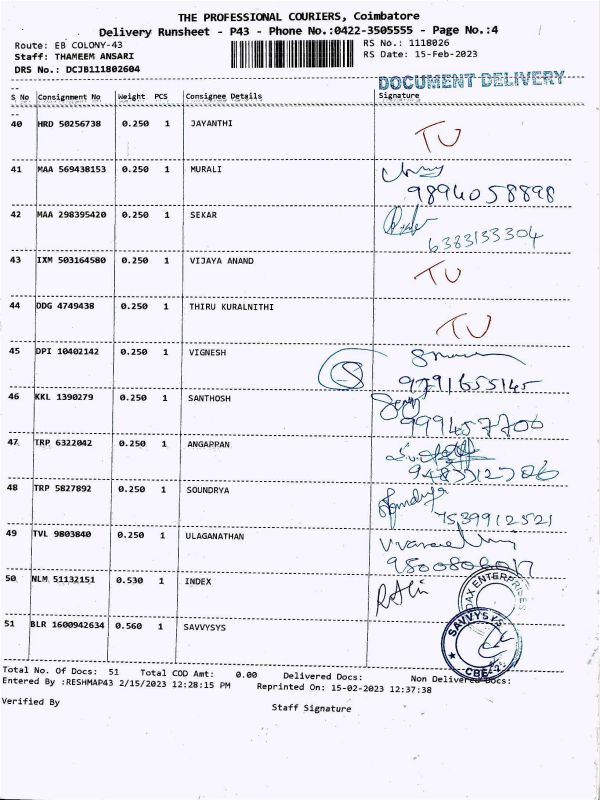 THE PROFESSIONAL COURIERS, Coimbatore
Delivery Runsheet - P43 - Phone No.:0422-3505555 - Page No.:4
Route: EB COLONY-43 RS No.: 1118026
Staff: THAMEEM ANSARI RS Date: 15-Feb-2023
DRS No.: DCJB111802604
DOCUMENT DELIVERY
S No Consignment No Weight PCS Consignee Details Signature
40 HRD 50256738 0.250 1 JAYANTHI TU
41 MAA 569438153 0.250 1 MURALI
9894058898
42 MAA 298395420 0.250 1 SEKAR
6383133304
43 IXM 503164580 0.250 1 VIJAYA ANAND TU
44 DDG 4749438 0.250 1 THIRU KURALNITHI TU
45 DPI 10402142 0.250 1 VIGNESH
9791655145
46 KKL 1390279 0.250 1 SANTHOSH
47 TRP 6322042 0.250 1 ANGAPPAN
48 TRP 5827892 0.250 1 SOUNDRYA
7539912521
49 TVL 9803840 0.250 1 ULAGANATHAN
50 NLM 51132151 0.530 1 INDEX
51 BLR 1600942634 0.560 1 SAVVYSYS
SAVVYSYS
Total No. Of Docs: 51 Total COD Amt: 0.00 Delivered Docs: Non Delivered Docs:
Entered By :RESHMAP43 2/15/2023 12:28:15 PM Reprinted On: 15-02-2023 12:37:38
Verified By Staff Signature